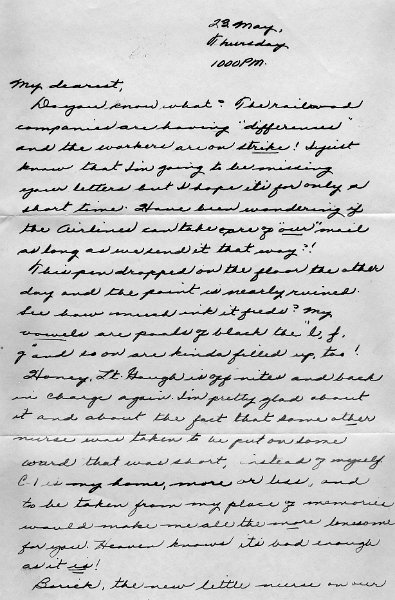 23 May,
Thursday
1000 PM.
My dearest,
Do you know what? The railroad
companies are having "differences"
and the workers are on strike! I just
know that I'm going to be missing
your letters but I hope it's for only a
short time. Have been wondering if
the Airlines can take care of "our" mail
as long as we send it that way?!
This pen dropped on the floor the other
day and the point is nearly ruined.
See how much ink it feeds? My
vowels are pools of black the "l, f,
g" and so on are kinda filled up, too!
Honey, Lt. Gough is off nites and back
in charge again. I'm pretty glad about
it and about the fact that some other
nurse was taken to be put on some
ward that was short, instead of myself
C-1 is my home, more or less, and
to be taken from my place of memories
would make me all the more lonesome
for you. Heaven knows it's bad enough
as it is!
Borick, the new little nurse on our